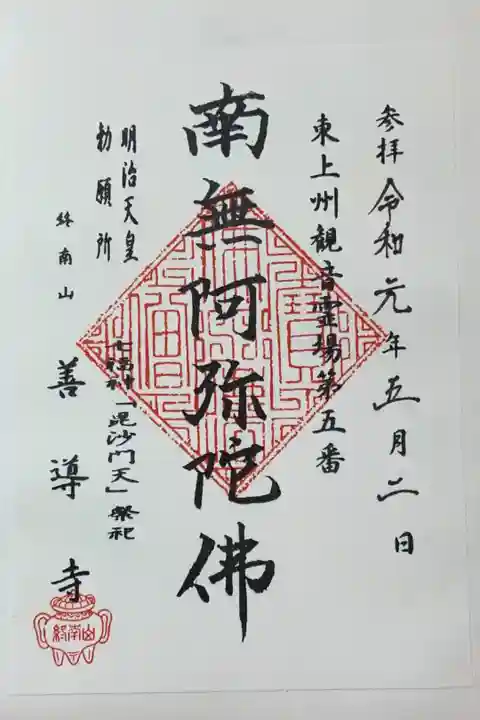 参拝 令和元年五月二日
東上州観音霊場第五番
南無阿弥陀佛
七福神「毘沙門天」祭祀
明治天皇
勅願所
終南山 善導寺
終南山